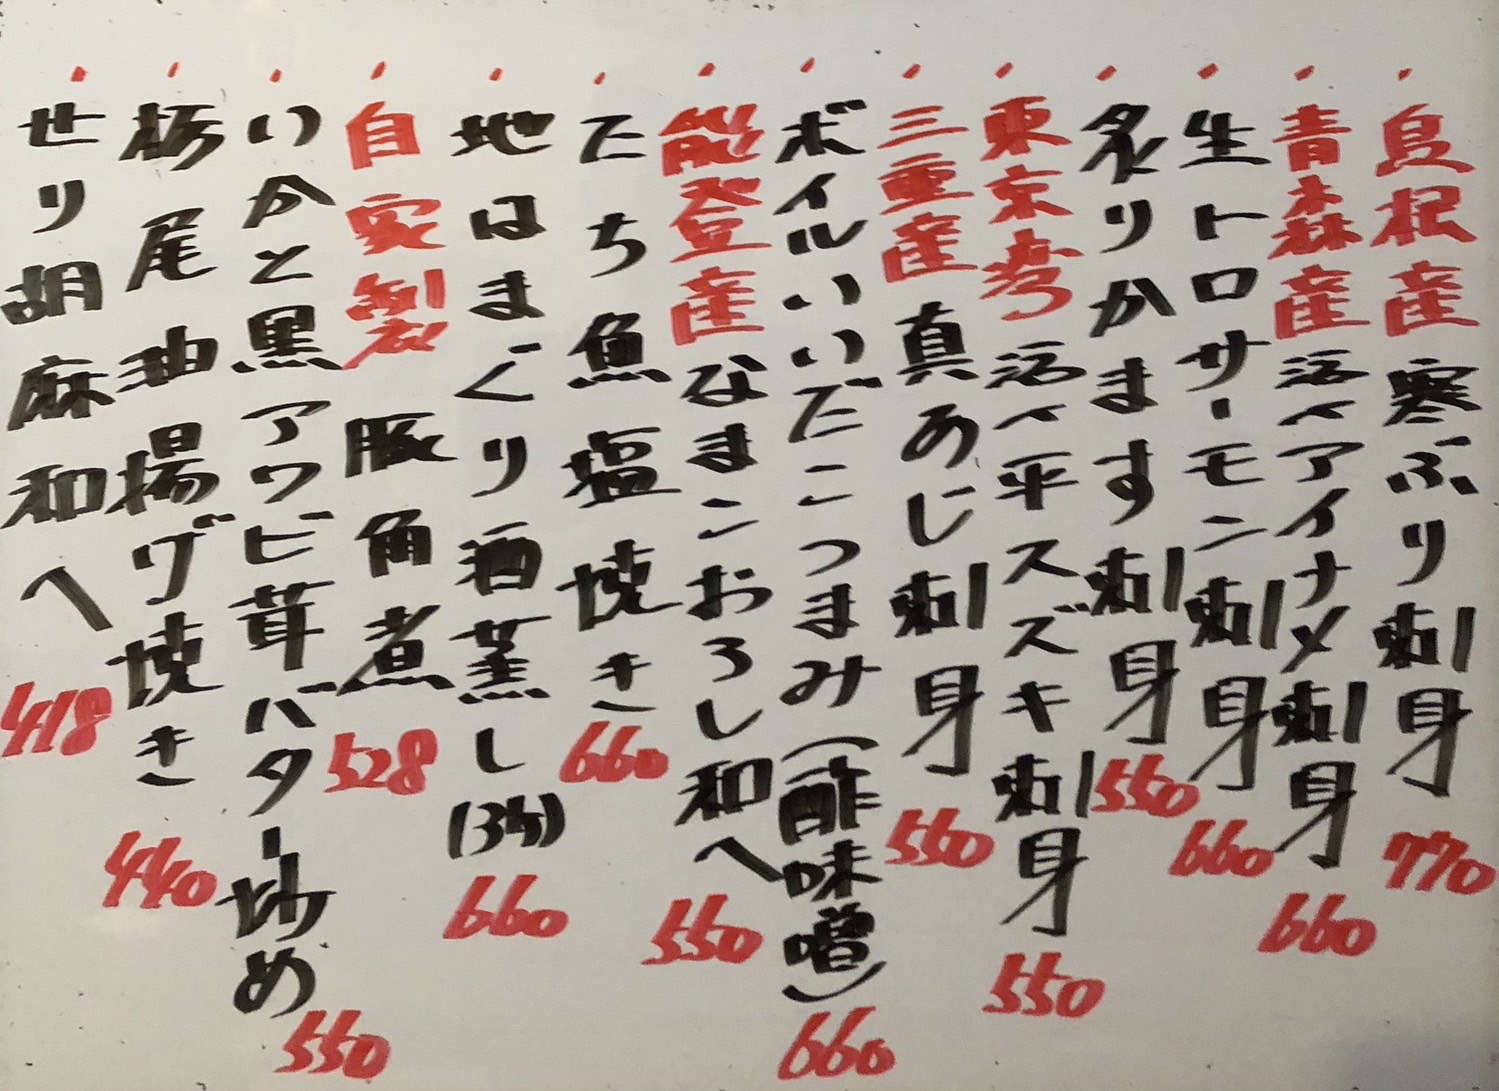 島根産 寒ぶり刺身 770
青森産 活〆アイナメ刺身 660
生トロサーモン刺身 660
炙りかます刺身 550
東京湾 活〆平スズキ刺身 550
三重産 真あじ刺身 550
ボイルいいだこつまみ(酢味噌) 660
能登産 なまこおろし和へ 550
たち魚塩焼き 660
地はまぐり酒蒸し(3ケ) 660
自家製 豚角煮 528
いかと黒アワビ茸バター炒め 550
栃尾油揚げ焼き 440
せり胡麻和へ 418